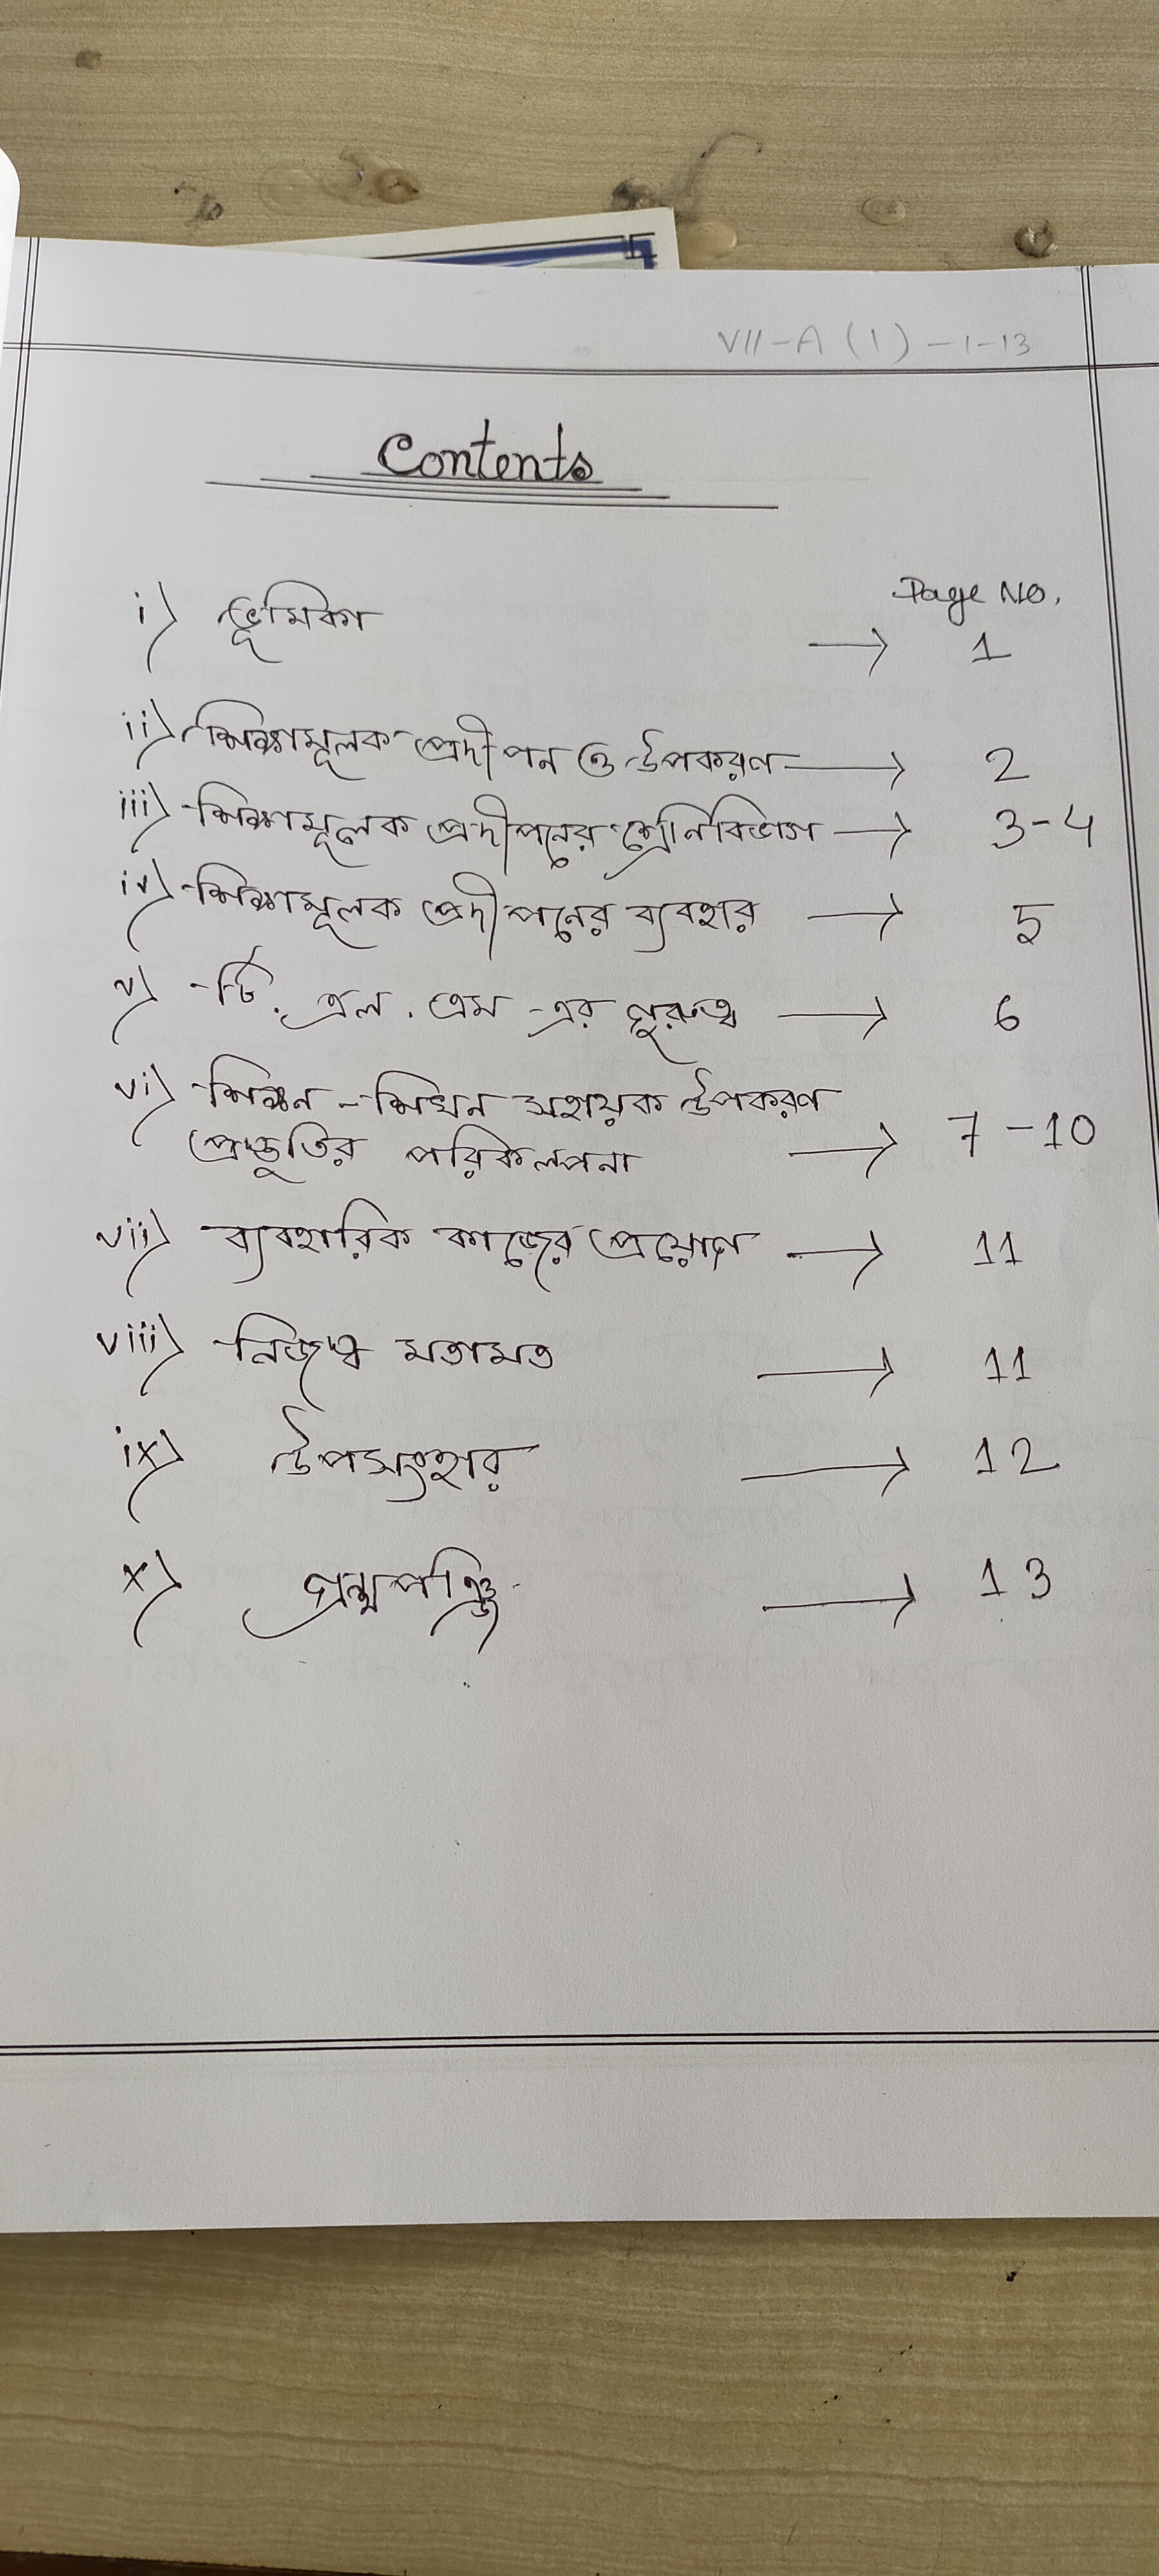 VII-A (1) - 1-13
Contents
Page No.
i) ভূমিকা → 1
ii) শিক্ষামূলক প্রদীপন ও উপকরণ → 2
iii) শিক্ষামূলক প্রদীপনের শ্রেণিবিভাগ → 3-4
iv) শিক্ষামূলক প্রদীপনের ব্যবহার → 5
v) টি. এল. এম -এর গুরুত্ব → 6
vi) শিক্ষন - শিখন সহায়ক উপকরণ
প্রস্তুতির পরিকল্পনা → 7-10
vii) ব্যবহারিক কাজের প্রয়োগ → 11
viii) নিজস্ব মতামত → 11
ix) উপসংহার → 12
x) গ্রন্থপঞ্জি → 13